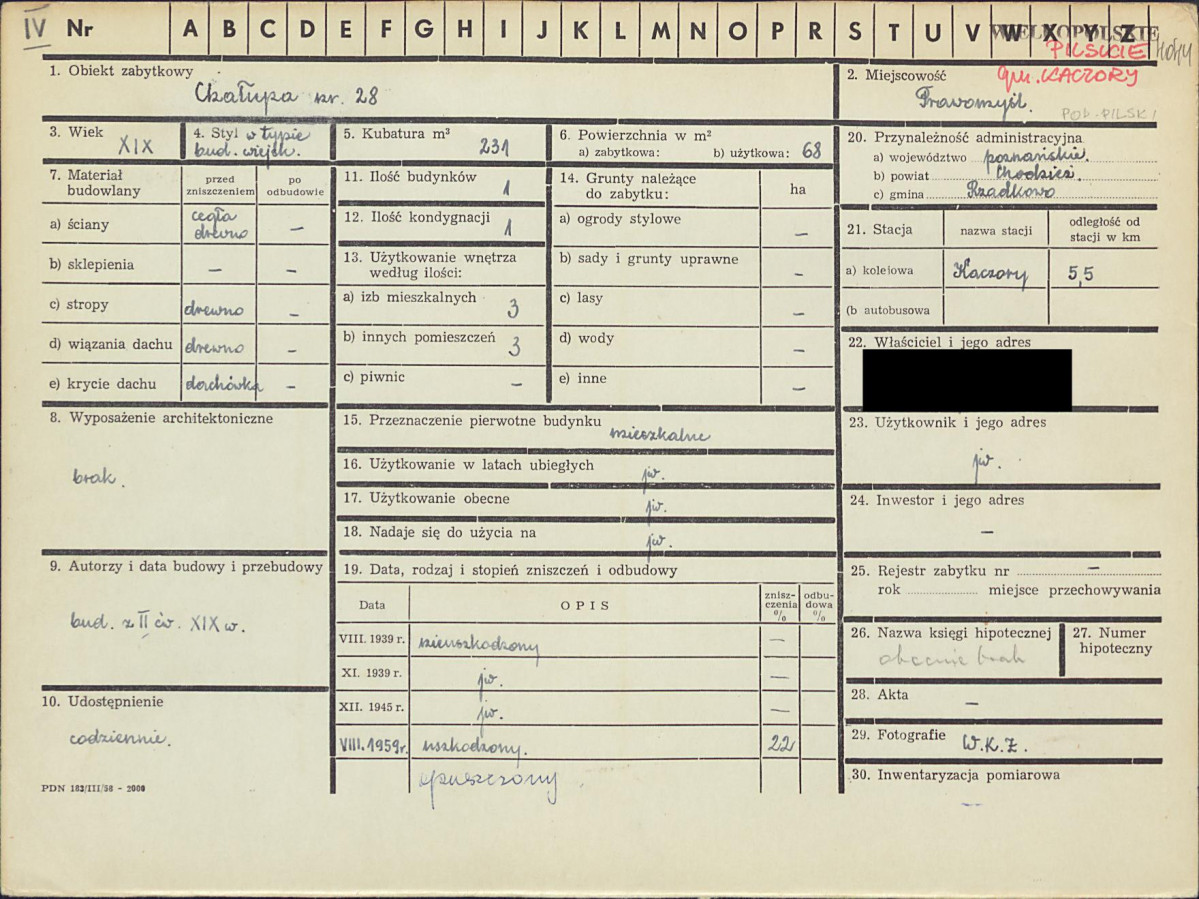 IV Nr A B C D E F G H I J K L M N O P R S T U V W X Y Z
WIELKOPOLSKIE
PILSKIE
gm. KACZORY
1. Obiekt zabytkowy
Chałupa nr. 28
2. Miejscowość
Prawomyśl.
POD. PILSKI
3. Wiek
XIX
4. Styl w typie
bud. wiejsk.
5. Kubatura m³
231
6. Powierzchnia w m²
a) zabytkowa: b) użytkowa: 68
7. Materiał
budowlany
przed
zniszczeniem
po
odbudowie
a) ściany cegła
drewno –
b) sklepienia – –
c) stropy drewno –
d) wiązania dachu drewno –
e) krycie dachu dachówka –
8. Wyposażenie architektoniczne
brak.
9. Autorzy i data budowy i przebudowy
bud. z II ćw. XIX w.
10. Udostępnienie
codziennie.
PDN 182/III/58 - 2000
11. Ilość budynków
1
12. Ilość kondygnacji
1
13. Użytkowanie wnętrza
według ilości:
a) izb mieszkalnych 3
b) innych pomieszczeń 3
c) piwnic –
14. Grunty należące
do zabytku:
ha
a) ogrody stylowe –
b) sady i grunty uprawne –
c) lasy –
d) wody –
e) inne –
15. Przeznaczenie pierwotne budynku
mieszkalne
16. Użytkowanie w latach ubiegłych
jw.
17. Użytkowanie obecne
jw.
18. Nadaje się do użycia na
jw.
19. Data, rodzaj i stopień zniszczeń i odbudowy
Data OPIS znisz-
czenia
%
odbu-
dowa
%
VIII. 1939 r. nieuszkodzony –
XI. 1939 r. jw. –
XII. 1945 r. jw. –
VIII. 1959r. uszkodzony. 22
opuszczony
20. Przynależność administracyjna
a) województwo poznańskie.
b) powiat Chodzież.
c) gmina Rzadkowo
21. Stacja nazwa stacji odległość od
stacji w km
a) kolejowa Kaczory 5,5
(b autobusowa
22. Właściciel i jego adres
23. Użytkownik i jego adres
jw.
24. Inwestor i jego adres
–
25. Rejestr zabytku nr –
rok miejsce przechowywania
26. Nazwa księgi hipotecznej
obecnie brak
27. Numer
hipoteczny
28. Akta –
29. Fotografie W.K.Z.
30. Inwentaryzacja pomiarowa
--